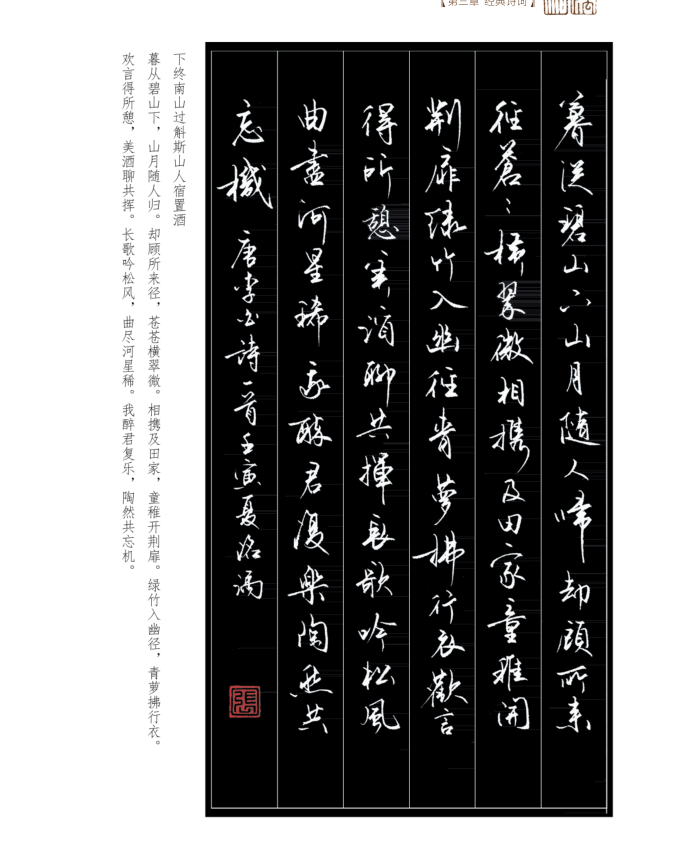 【第三章 经典诗词】
暮從碧山下山月隨人歸却顧所來
徑蒼〻橫翠微相攜及田家童稚開
荊扉綠竹入幽徑青蘿拂行衣歡言
得所憩美酒聊共揮長歌吟松風
曲盡河星稀我醉君復樂陶然共
忘機 唐李白詩一首壬寅夏
張
下终南山过斛斯山人宿置酒
暮从碧山下，山月随人归。却顾所来径，苍苍横翠微。相携及田家，童稚开荆扉。绿竹入幽径，青萝拂行衣。
欢言得所憩，美酒聊共挥。长歌吟松风，曲尽河星稀。我醉君复乐，陶然共忘机。